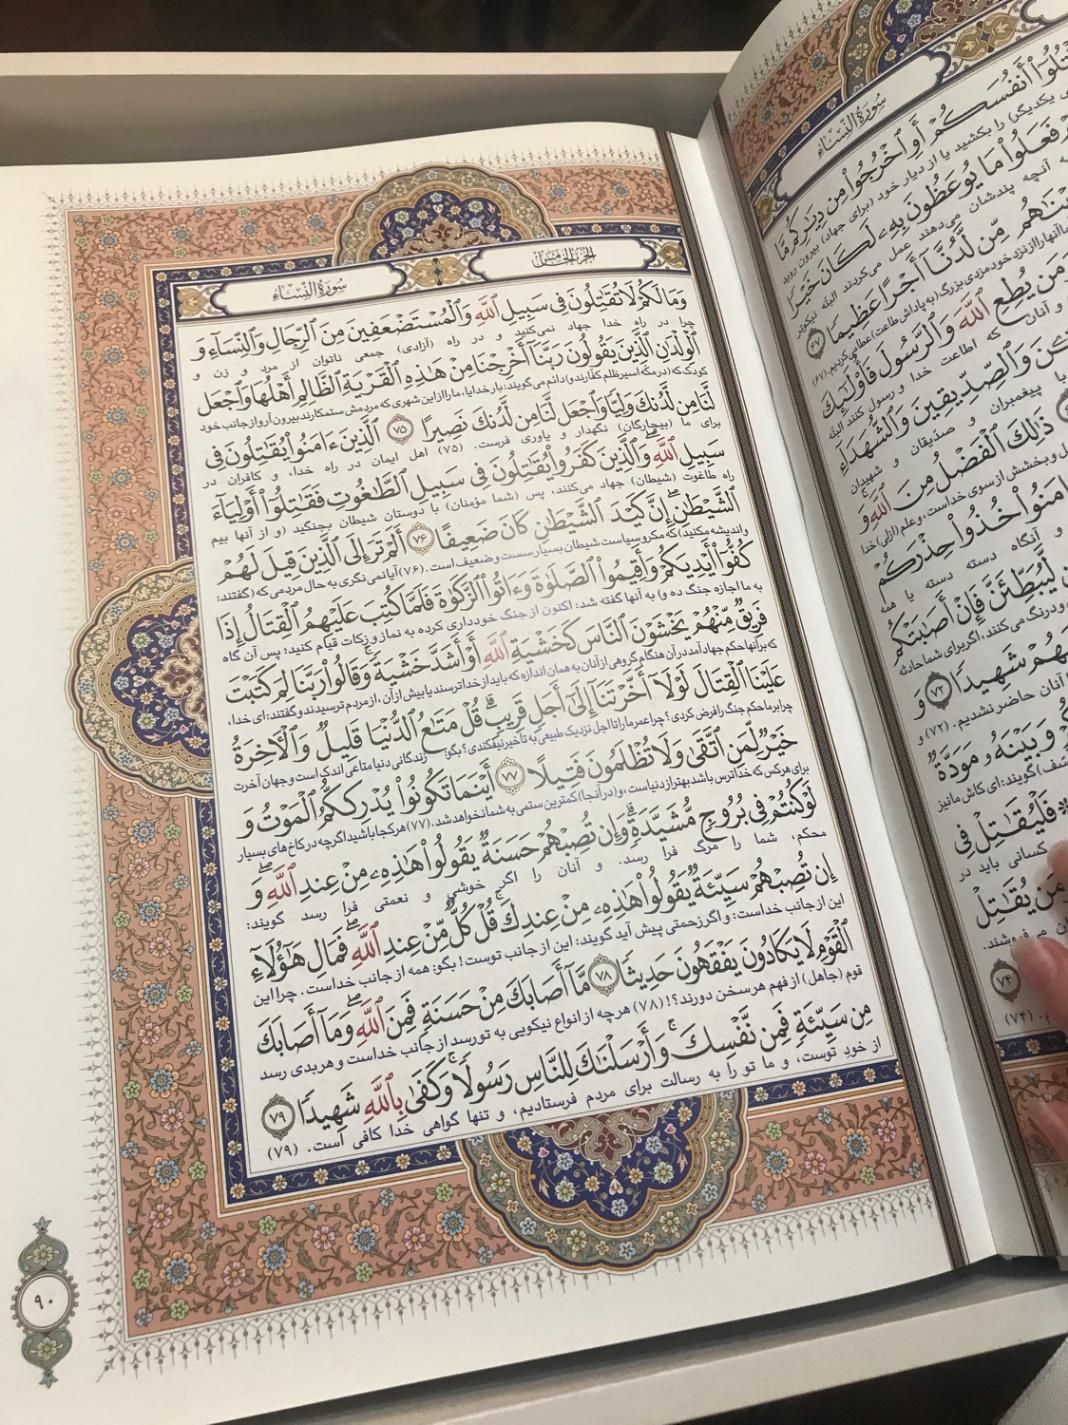 سُورَةُ النِّسَاءِ
الجُزءُ الخَامِسُ
وَمَا لَكُمْ لَا تُقَٰتِلُونَ فِى سَبِيلِ ٱللَّهِ وَٱلْمُسْتَضْعَفِينَ مِنَ ٱلرِّجَالِ وَٱلنِّسَآءِ وَ
چرا در راه خدا جهاد نمی‌کنید و در راه (آزادی) جمعی ناتوان از مرد و زن و
ٱلْوِلْدَٰنِ ٱلَّذِينَ يَقُولُونَ رَبَّنَآ أَخْرِجْنَا مِنْ هَٰذِهِ ٱلْقَرْيَةِ ٱلظَّالِمِ أَهْلُهَا وَٱجْعَل
کودک که (در مکه اسیر ظلم کفارند و) دائم می‌گویند: بار خدایا، ما را از این شهری که مردمش ستمکارند بیرون آر و از جانب خود
لَّنَا مِن لَّدُنكَ وَلِيًّا وَٱجْعَل لَّنَا مِن لَّدُنكَ نَصِيرًا ۷۵ ٱلَّذِينَ ءَامَنُوا۟ يُقَٰتِلُونَ فِى
برای ما (بیچارگان) نگهدار و یاوری فرست. (۷۵) اهل ایمان در راه خدا، و کافران در
سَبِيلِ ٱللَّهِ وَٱلَّذِينَ كَفَرُوا۟ يُقَٰتِلُونَ فِى سَبِيلِ ٱلطَّٰغُوتِ فَقَٰتِلُوٓا۟ أَوْلِيَآءَ
راه طاغوت (شیطان) جهاد می‌کنند، پس (شما مؤمنان) با دوستان شیطان بجنگید (و از آنها بیم
ٱلشَّيْطَٰنِ إِنَّ كَيْدَ ٱلشَّيْطَٰنِ كَانَ ضَعِيفًا ۷۶ أَلَمْ تَرَ إِلَى ٱلَّذِينَ قِيلَ لَهُمْ
و اندیشه مکنید) که مکر و سیاست شیطان بسیار سست و ضعیف است. (۷۶) آیا نمی‌نگری به حال مردمی که (گفتند:
كُفُّوٓا۟ أَيْدِيَكُمْ وَأَقِيمُوا۟ ٱلصَّلَوٰةَ وَءَاتُوا۟ ٱلزَّكَوٰةَ فَلَمَّا كُتِبَ عَلَيْهِمُ ٱلْقِتَالُ إِذَا
به ما اجازه جنگ ده و) به آنها گفته شد: اکنون از جنگ خودداری کرده به نماز و زکات قیام کنید؛ پس آن گاه
فَرِيقٌ مِّنْهُمْ يَخْشَوْنَ ٱلنَّاسَ كَخَشْيَةِ ٱللَّهِ أَوْ أَشَدَّ خَشْيَةً وَقَالُوا۟ رَبَّنَا لِمَ كَتَبْتَ
که بر آنها حکم جهاد آمد در آن هنگام گروهی از آنان به همان اندازه که باید از خدا ترسند یا بیش از آن، از مردم ترسیدند و گفتند: ای خدا،
عَلَيْنَا ٱلْقِتَالَ لَوْلَآ أَخَّرْتَنَآ إِلَىٰٓ أَجَلٍ قَرِيبٍ قُلْ مَتَٰعُ ٱلدُّنْيَا قَلِيلٌ وَٱلْءَاخِرَةُ
چرا بر ما حکم جنگ را فرض کردی؟ چرا عمر ما را تا اجل نزدیک طبیعی به تأخیر نیفکندی؟ بگو: زندگانی دنیا متاعی اندک است و جهان آخرت
خَيْرٌ لِّمَنِ ٱتَّقَىٰ وَلَا تُظْلَمُونَ فَتِيلًا ۷۷ أَيْنَمَا تَكُونُوا۟ يُدْرِككُّمُ ٱلْمَوْتُ وَ
برای هر کس که خداترس باشد بهتر از دنیاست، و (در آنجا) کمترین ستمی به شما نخواهد شد. (۷۷) هر کجا باشید اگر چه در کاخ‌های بسیار
لَوْ كُنتُمْ فِى بُرُوجٍ مُّشَيَّدَةٍ وَإِن تُصِبْهُمْ حَسَنَةٌ يَقُولُوا۟ هَٰذِهِۦ مِنْ عِندِ ٱللَّهِ وَ
محکم، شما را مرگ فرا رسد. و آنان را اگر خوشی و نعمتی فرا رسد گویند:
إِن تُصِبْهُمْ سَيِّئَةٌ يَقُولُوا۟ هَٰذِهِۦ مِنْ عِندِكَ قُلْ كُلٌّ مِّنْ عِندِ ٱللَّهِ فَمَالِ هَٰٓؤُلَآءِ
این از جانب خداست؛ و اگر زحمتی پیش آید گویند: این از جانب توست! بگو: همه از جانب خداست. چرا این
ٱلْقَوْمِ لَا يَكَادُونَ يَفْقَهُونَ حَدِيثًا ۷۸ مَّآ أَصَابَكَ مِنْ حَسَنَةٍ فَمِنَ ٱللَّهِ وَمَآ أَصَابَكَ
قوم (جاهل) از فهم هر سخن دورند؟! (۷۸) هر چه از انواع نیکویی به تو رسد از جانب خداست و هر بدی رسد
مِن سَيِّئَةٍ فَمِن نَّفْسِكَ وَأَرْسَلْنَٰكَ لِلنَّاسِ رَسُولًا وَكَفَىٰ بِٱللَّهِ شَهِيدًا ۷۹
از خودِ توست، و ما تو را به رسالت برای مردم فرستادیم، و تنها گواهی خدا کافی است. (۷۹)
۹۰
سُورَةُ النِّسَاءِ
أَنفُسَكُمْ أَوِ ٱخْرُجُوا۟ مِن دِيَٰرِكُم مَّا
یکدیگر) را بکشید یا از دیار خود (برای جهاد) بیرون روید
فَعَلُوا۟ مَا يُوعَظُونَ بِهِۦ لَكَانَ خَيْرًا
آنچه پندشان می‌دهند عمل می‌کردند البته نیکوتر
مِّن لَّدُنَّآ أَجْرًا عَظِيمًا ۶۷
مَن يُطِعِ ٱللَّهَ وَٱلرَّسُولَ فَأُو۟لَٰٓئِكَ
و آنان که اطاعت خدا و رسول کنند البته
وَٱلصِّدِّيقِينَ وَٱلشُّهَدَآءِ
با پیغمبران و صدیقان و شهیدان
ذَٰلِكَ ٱلْفَضْلُ مِنَ ٱللَّهِ وَ
و بخشش از سوی خداست، و علم (ازلی) خدا
خُذُوا۟ حِذْرَكُمْ
و آنگاه دسته دسته یا همه
لَّيُبَطِّئَنَّ فَإِنْ أَصَٰبَتْكُم
درنگ می‌کنند، اگر برای شما حادثه
شَهِيدًا ۷۲ وَ
آنان حاضر نشدیم. (۷۲) و
وَبَيْنَهُۥ مَوَدَّةٌ
گویند: ای کاش ما نیز
فَلْيُقَٰتِلْ فِى
کسانی باید در
وَمَن يُقَٰتِلْ
۷۴
(۷۴)